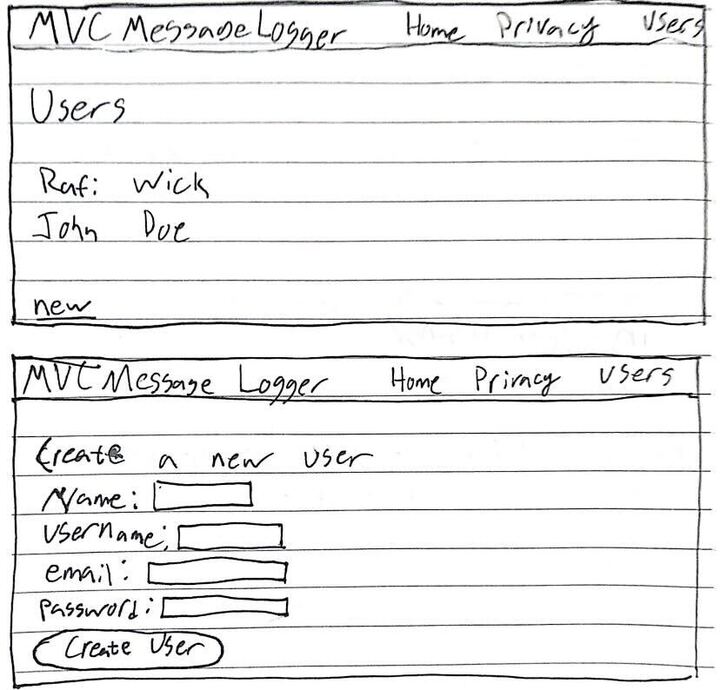 MVC Message Logger Home Privacy Users
Users
Rafi Wick
John Doe
new
MVC Message Logger Home Privacy Users
Create a new user
Name:
Username:
email:
password:
Create User